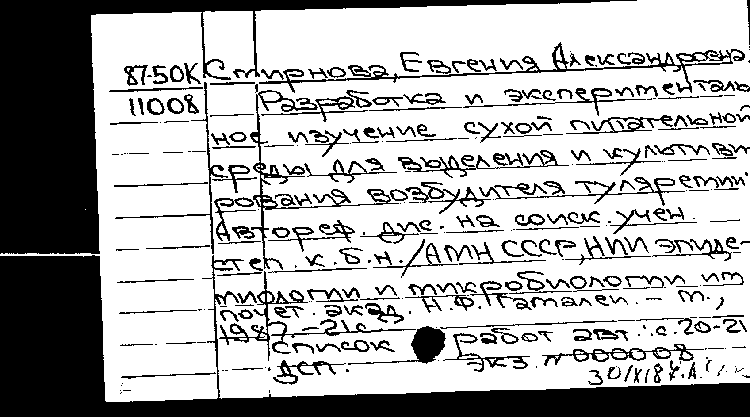 87-50К Смирнова, Евгения Александровна.
11008 Разработка и эксперименталь
ное изучение сухой питательной
среды для выделения и культиви
рования возбудителя туляремии.
Автореф. дис. на соиск. учен.
степ. к.б.н. /АМН СССР, НИИ эпиде-
миологии и микробиологии им
почет. акад. Н.Ф. Гамалеи. - М.,
1987. - 21 с.
список работ авт.: с.20-21
ДСП. экз. N 000008.